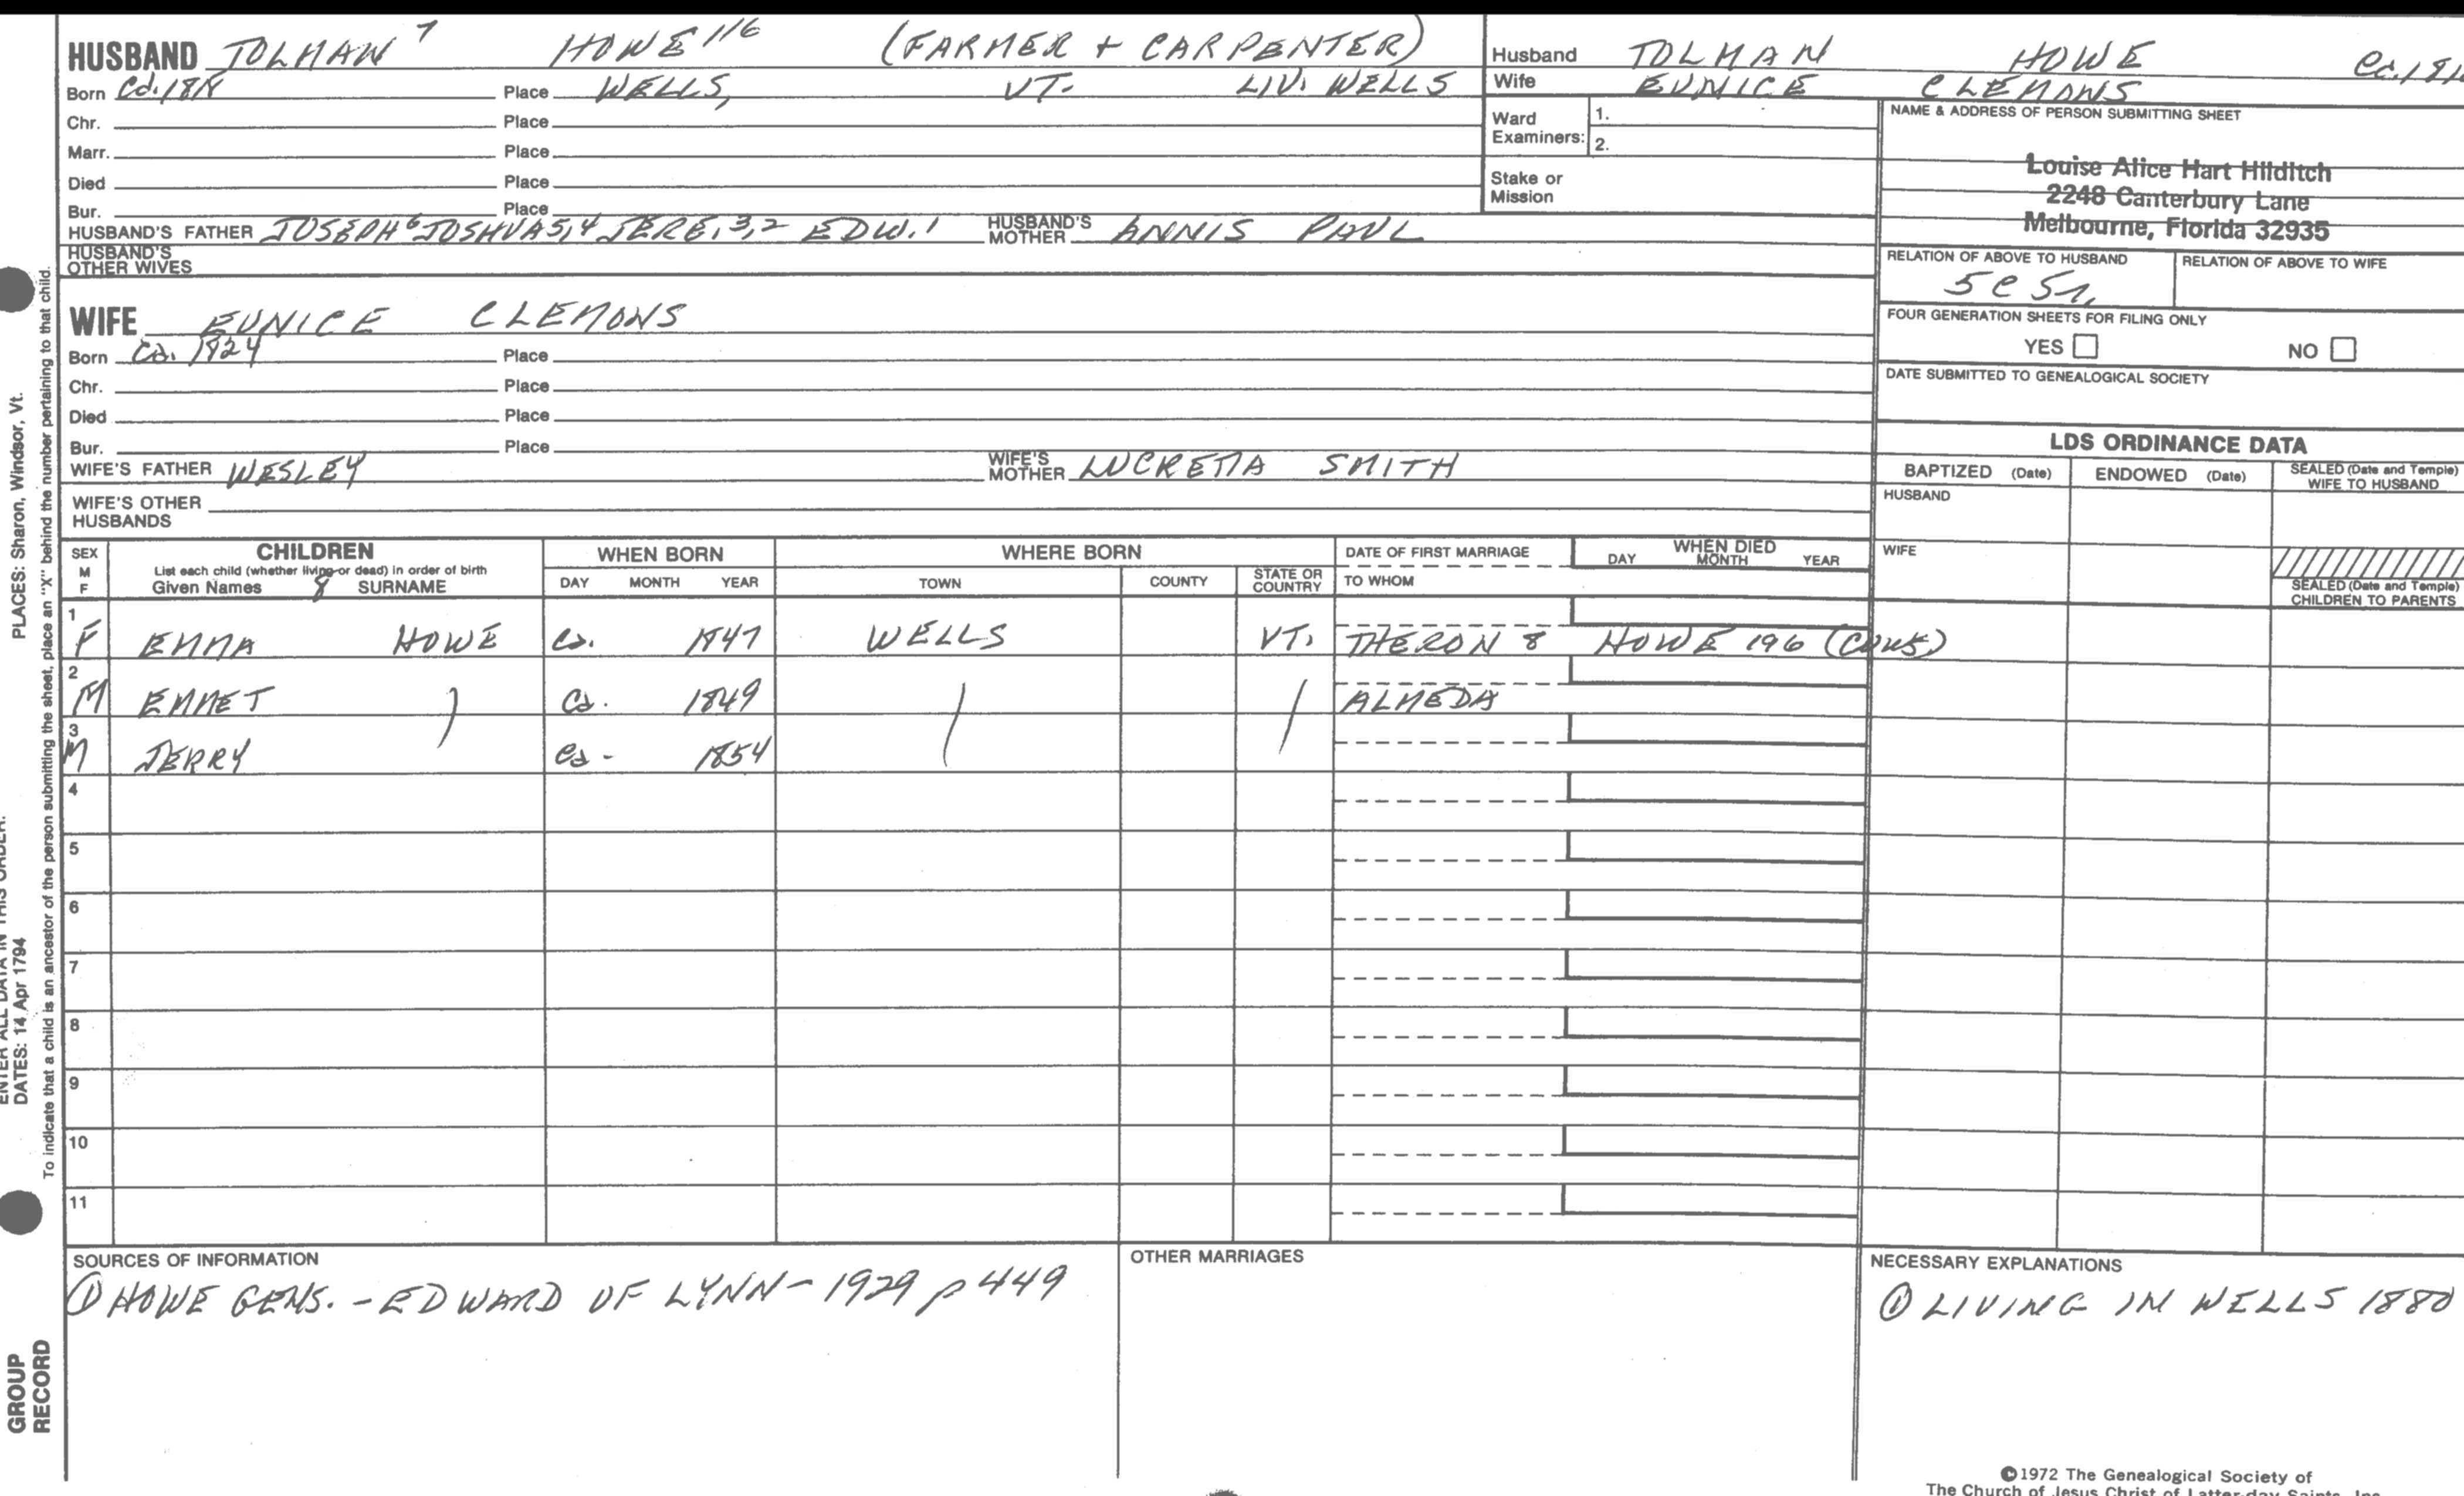 HUSBAND TOLMAN 7 HOWE 116 (FARMER + CARPENTER)
Born Place WELLS, VT. LIV. WELLS
Chr. Place
Marr. Place
Died Place
Bur. Place
HUSBAND'S FATHER JOSEPH 6 JOSHUA 5,4 JERE. 3,2 EDW. 1 HUSBAND'S MOTHER ANNIS PAUL
HUSBAND'S OTHER WIVES
WIFE EUNICE CLEMONS
Born Ca. 1824 Place
Chr. Place
Died Place
Bur. Place
WIFE'S FATHER WESLEY WIFE'S MOTHER LUCRETIA SMITH
WIFE'S OTHER HUSBANDS
Husband TOLMAN HOWE
Wife EUNICE CLEMONS
Ward Examiners: 1.
2.
Stake or Mission
NAME & ADDRESS OF PERSON SUBMITTING SHEET
Louise Alice Hart Hilditch
2248 Canterbury Lane
Melbourne, Florida 32935
RELATION OF ABOVE TO HUSBAND RELATION OF ABOVE TO WIFE
FOUR GENERATION SHEETS FOR FILING ONLY
YES NO
DATE SUBMITTED TO GENEALOGICAL SOCIETY
LDS ORDINANCE DATA
BAPTIZED (Date) ENDOWED (Date) SEALED (Date and Temple) WIFE TO HUSBAND
HUSBAND
WIFE
SEALED (Date and Temple) CHILDREN TO PARENTS
SEX M F CHILDREN WHEN BORN WHERE BORN DATE OF FIRST MARRIAGE WHEN DIED
List each child (whether living or dead) in order of birth
Given Names 8 SURNAME DAY MONTH YEAR TOWN COUNTY STATE OR COUNTRY TO WHOM DAY MONTH YEAR
1 F EMMA HOWE Ca. 1847 WELLS VT. THERON 8 HOWE 196 (COUS)
2 M EMMET ) Ca. 1849 ) / ALMEDA
3 M JERRY Ca. 1854
4
5
6
7
8
9
10
11
SOURCES OF INFORMATION
① HOWE GENS. - EDWARD OF LYNN - 1929 p 449
OTHER MARRIAGES
NECESSARY EXPLANATIONS
① LIVING IN WELLS 1880
©1972 The Genealogical Society of
The Church of Jesus Christ of Latter-day Saints, Inc.
PLACES: Sharon, Windsor, Vt.
To indicate that a child is an ancestor of the person submitting the sheet, place an "X" behind the number pertaining to that child.
ENTER ALL DATA IN THIS ORDER:
DATES: 14 Apr 1794
GROUP
RECORD